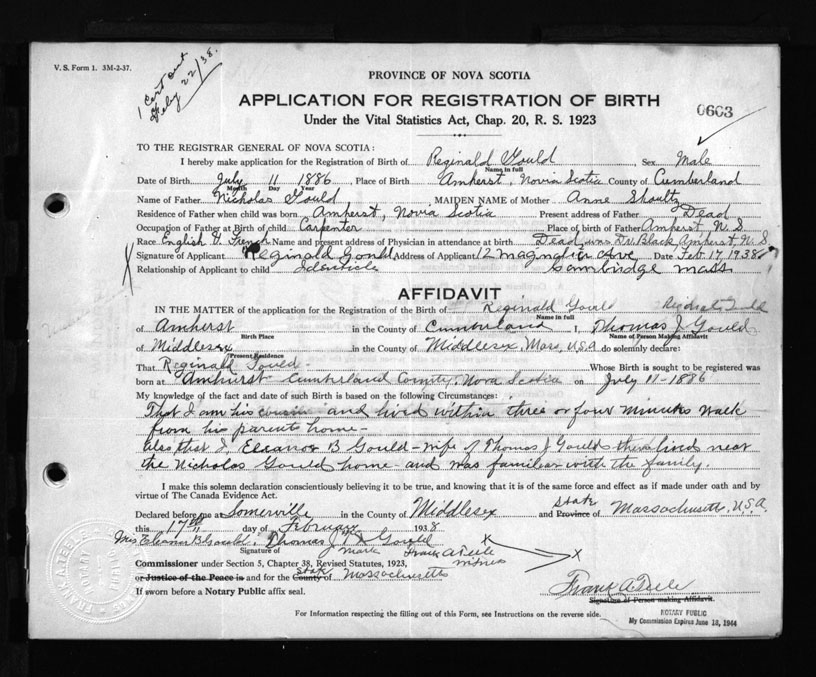 V. S. Form 1. 3M-2-37.
1 Cert out
Feby 22/38.
PROVINCE OF NOVA SCOTIA
APPLICATION FOR REGISTRATION OF BIRTH
0603
Under the Vital Statistics Act, Chap. 20, R. S. 1923
TO THE REGISTRAR GENERAL OF NOVA SCOTIA:
I hereby make application for the Registration of Birth of Reginald Gould, Sex Male
Name in full
Date of Birth July 11 1886, Place of Birth Amherst, Novia Scotia County of Cumberland
Month Day Year
Name of Father Nicholas Gould MAIDEN NAME of Mother Anne Shoultz
Residence of Father when child was born Amherst, Novia Scotia Present address of Father Dead
Occupation of Father at Birth of child Carpenter Place of birth of Father Amherst, N. S.
Race English & French Name and present address of Physician in attendance at birth Dead, was Dr Black, Amherst, N. S.
Signature of Applicant Reginald Gould Address of Applicant 12 Magnolia Ave Date Feb 17, 1938
Relationship of Applicant to child Cambridge Mass
AFFIDAVIT
IN THE MATTER of the application for the Registration of the Birth of Reginald Gould
Name in full
of Amherst in the County of Cumberland I, Thomas J. Gould
Birth Place Name of Person Making Affidavit
of Middlesex in the County of Middlesex Mass, U.S.A do solemnly declare:
Present Residence
That Reginald Gould Whose Birth is sought to be registered was
born at Amhurst Cumberland County, Nova Scotia on July 11-1886
My knowledge of the fact and date of such Birth is based on the following Circumstances:
That I am his cousin and lived within three or four minutes walk
from his parents home-
Also that I Eleanor B Gould-wife of Thomas J Gould lived near
the Nicholas Gould home-and was familiar with the family.
I make this solemn declaration conscientiously believing it to be true, and knowing that it is of the same force and effect as if made under oath and by
virtue of The Canada Evidence Act.
Declared before me at Somerville in the County of Middlesex and State Province of Massachusetts, U.S.A.
this 17th day of February 1938
Mrs Eleanor B Gould, Thomas J X Gould X
Signature of mark Frank A Teele X
witness
Commissioner under Section 5, Chapter 38, Revised Statutes, 1923,
or Justice of the Peace in and for the State County of Massachusetts
If sworn before a Notary Public affix seal.
Frank A. Teele
Signature of Person making Affidavit.
NOTARY PUBLIC
My Commission Expires June 18, 1944
For Information respecting the filling out of this Form, see Instructions on the reverse side.